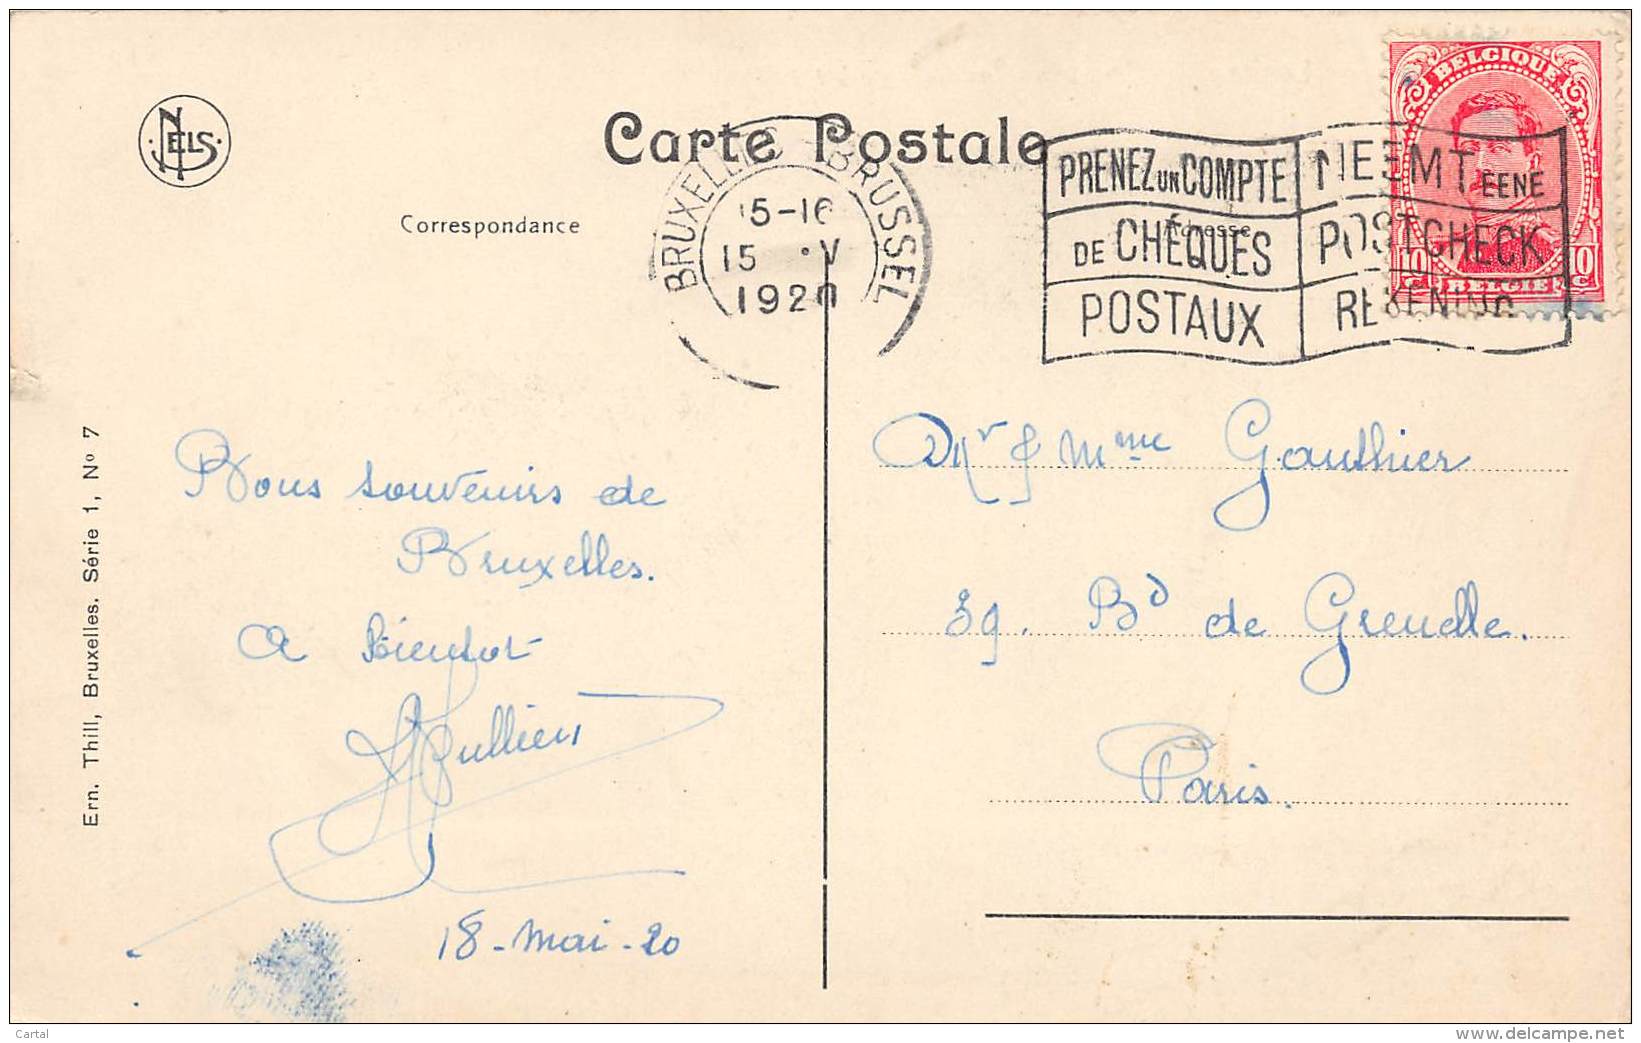 NELS
Carte Postale
Correspondance
Adresse
BRUXELLES BRUSSEL
15-16
15 V
1920
PRENEZ UN COMPTE
DE CHÈQUES
POSTAUX
NEEMT EENE
POSTCHECK
REKENING
BELGIQUE
10 c 10 c
BELGIË
Ern. Thill, Bruxelles. Série 1, Nº 7
Bons souvenirs de
Bruxelles.
A bientot
Jullien
18 - mai - 20
Mr & Mme Gauthier
39. Bd de Grenelle.
Paris.
Cartal
delcampe.net